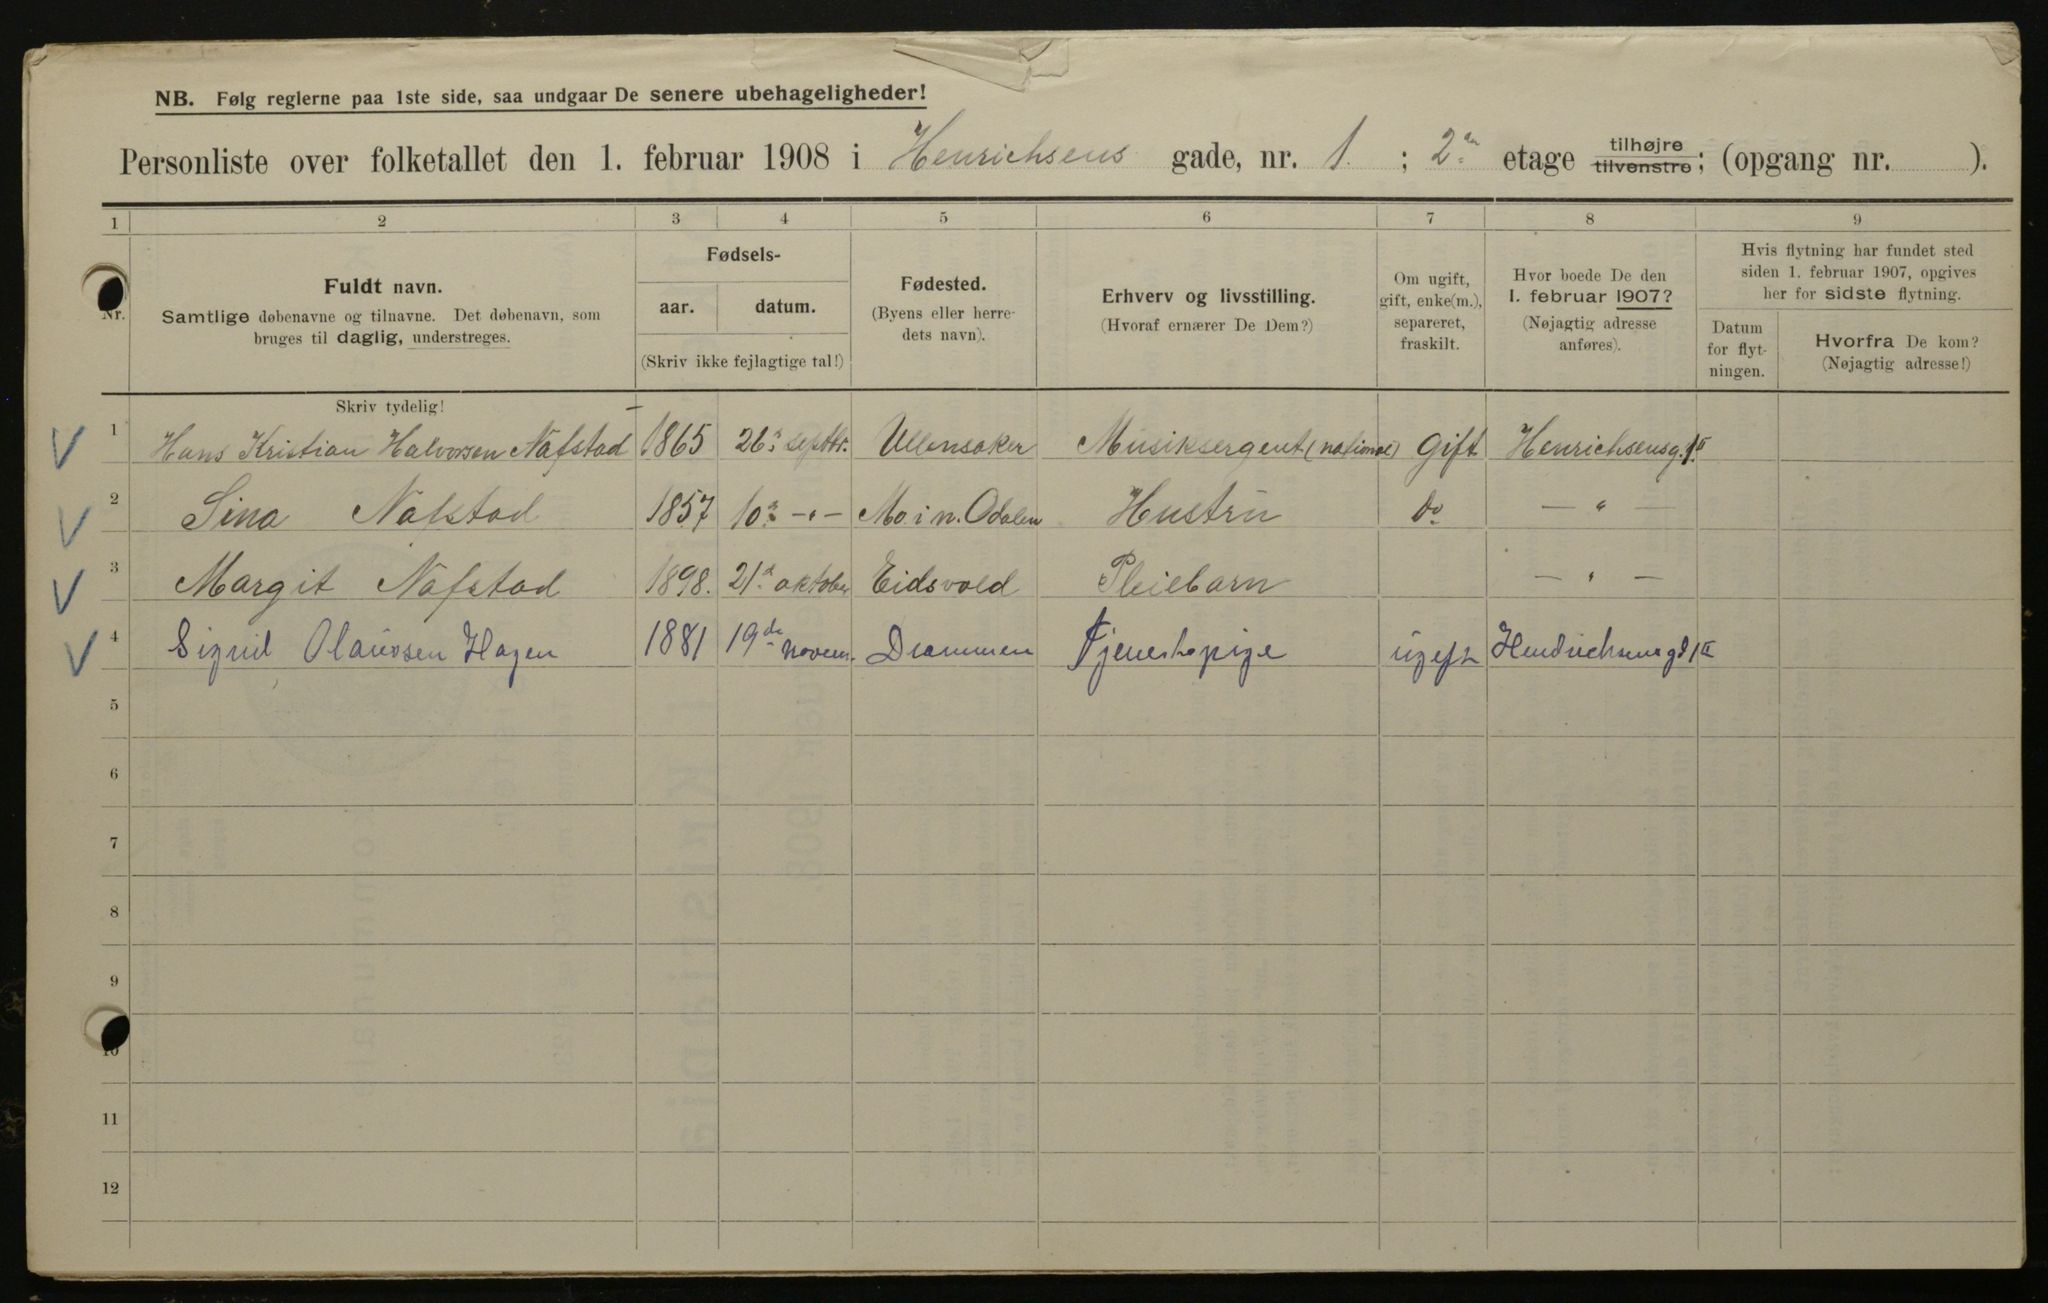 NB. Følg reglerne paa 1ste side, saa undgaar De senere ubehageligheder!
Personliste over folketallet den 1. februar 1908 i Henrichsens gade, nr. 1. ; 2. etage tilhøjre tilvenstre; (opgang nr. ).
1 2 3 4 5 6 7 8 9
Nr.
Fuldt navn.
Samtlige døbenavne og tilnavne. Det døbenavn, som
bruges til daglig, understreges.
Fødsels-
aar. datum.
(Skriv ikke fejlagtige tal!)
Fødested.
(Byens eller herre-
dets navn).
Erhverv og livsstilling.
(Hvoraf ernærer De Dem?)
Om ugift,
gift, enke(m.),
separeret,
fraskilt.
Hvor boede De den
1. februar 1907?
(Nøjagtig adresse
anføres).
Hvis flytning har fundet sted
siden 1. februar 1907, opgives
her for sidste flytning.
Datum
for flyt-
ningen.
Hvorfra De kom?
(Nøjagtig adresse!)
Skriv tydelig!
1 Hans Kristian Halvorsen Nafstad 1865 26. septbr. Ullensaker Musiksergent (national) Gift Henrichsensg. 1 II
2 Sina Nafstad 1857 10. -"- Mo i n. Odalen Hustru Do — " —
3 Margit Nafstad 1898. 21. oktober Eidsvold Pleiebarn — " —
4 Sigrid Olaussen Hagen 1881 19de novem. Drammen Tjenestepige ugift Hendrichsensgd 1 II
5
6
7
8
9
10
11
12